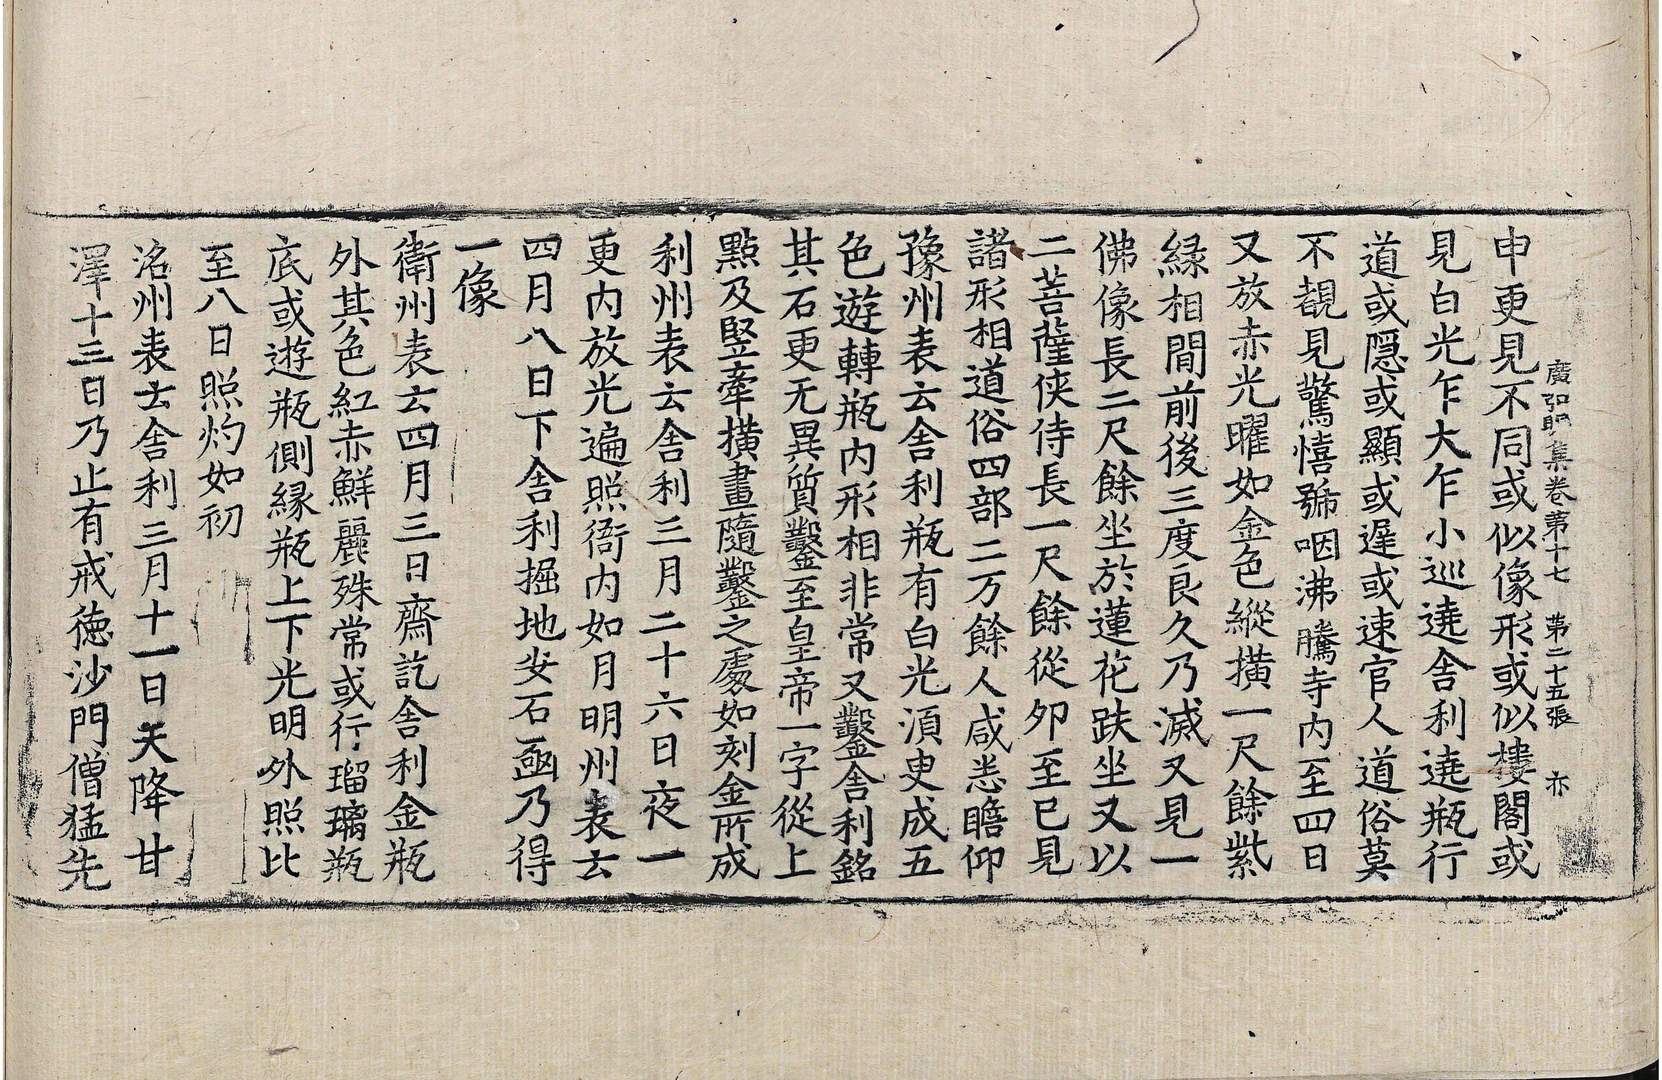 廣弘明集卷第十七 第二十五張 亦
申更見不同或似像形或似樓閣或
見白光乍大乍小巡遶舍利遶瓶行
道或隱或顯或遲或速官人道俗莫
不覩見驚憘號咽沸騰寺内至四日
又放赤光曜如金色縱橫一尺餘紫
緑相間前後三度良久乃滅又見一
佛像長二尺餘坐於蓮花趺坐又以
二菩薩俠侍長一尺餘從夘至巳見
諸形相道俗四部二万餘人咸悉瞻仰
豫州表云舍利瓶有白光湏臾成五
色遊轉瓶内形相非常又鑿舍利銘
其石更无異質鑿至皇帝一字從上
點及竪牽橫畫隨鑿之處如刻金所成
利州表云舍利三月二十六日夜一
更内放光遍照衙内如月明州表云
四月八日下舍利掘地安石函乃得
一像
衛州表云四月三日齋訖舍利金瓶
外其色紅赤鮮麗殊常或行瑠璃瓶
底或遊瓶側縁瓶上下光明外照比
至八日照灼如初
洺州表云舍利三月十一日天降甘
澤十三日乃止有戒德沙門僧猛先